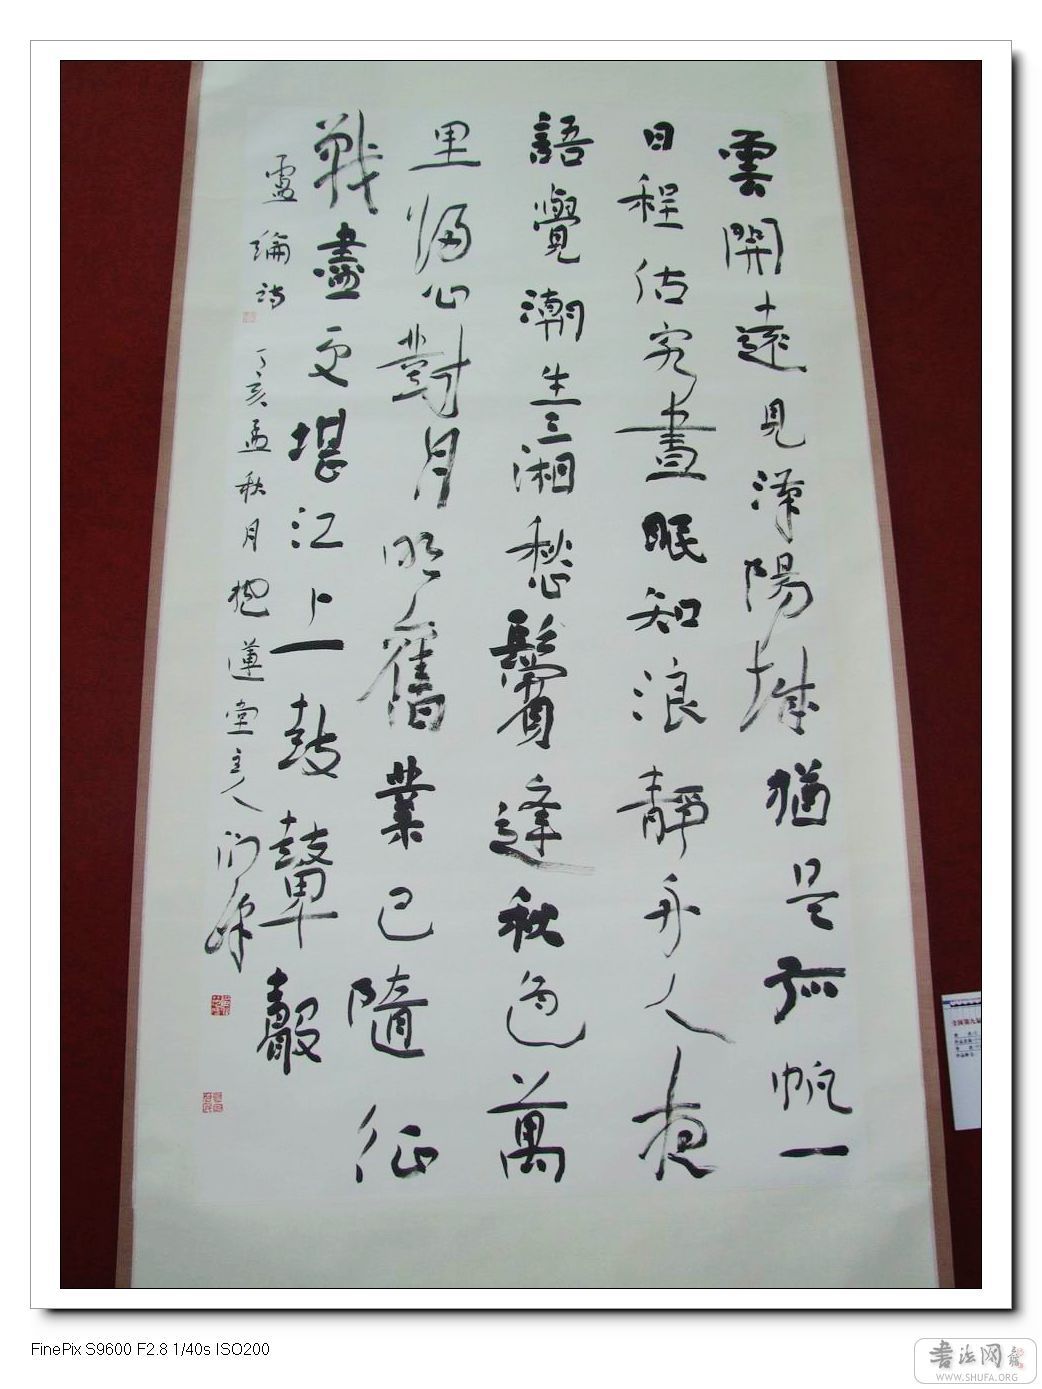 雲開遠見漢陽城猶是孤帆一
日程估客晝眠知浪靜舟人夜
語覺潮生三湘愁鬢逢秋色萬
里歸心對月明舊業已隨征
戰盡更堪江上鼓鼙聲
盧綸詩 丁亥孟秋月抱蓮堂主人
FinePix S9600 F2.8 1/40s ISO200
書法网
WWW.SHUFA.ORG